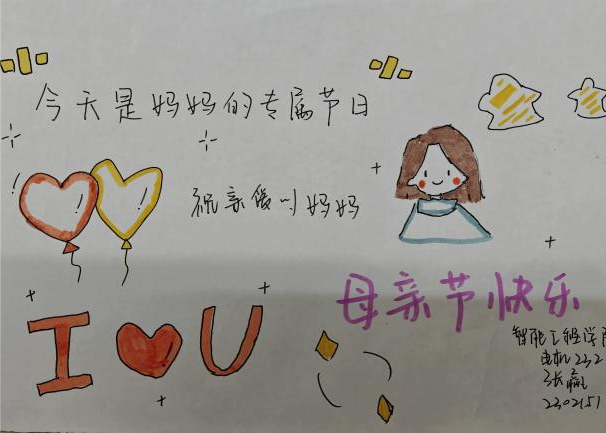 今天是妈妈的专属节日
祝亲爱的妈妈
母亲节快乐
I ❤ U
智能工程学院
电机232
张赢
2302151